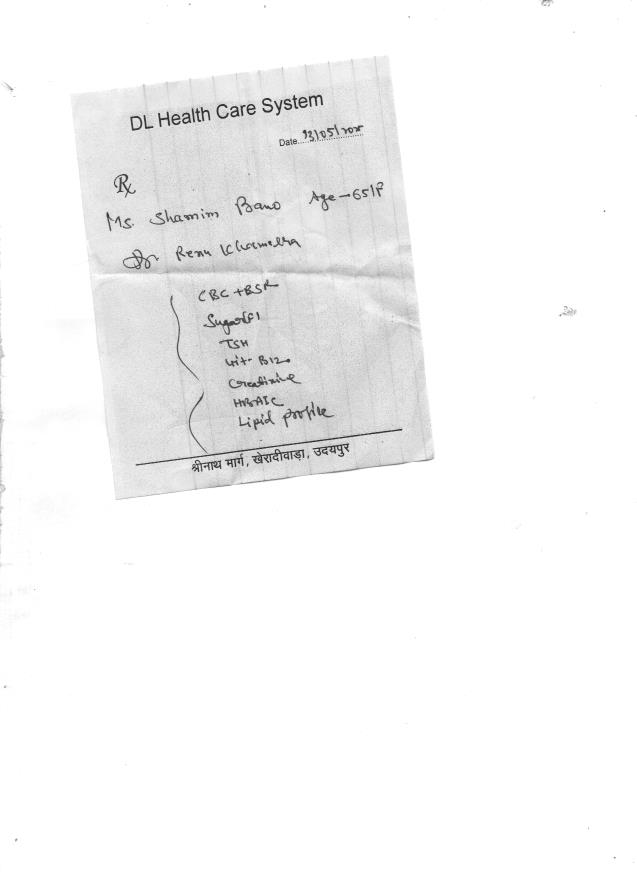 DL Health Care System
Date 13/05/2025
Rx
Ms. Shamim Bano Age - 65/F
Dr. Renu
CBC + ESR
Sugar (F)
TSH
Vit- B12
Creatinine
HbA1C
Lipid profile
श्रीनाथ मार्ग, खेरादीवाड़ा, उदयपुर